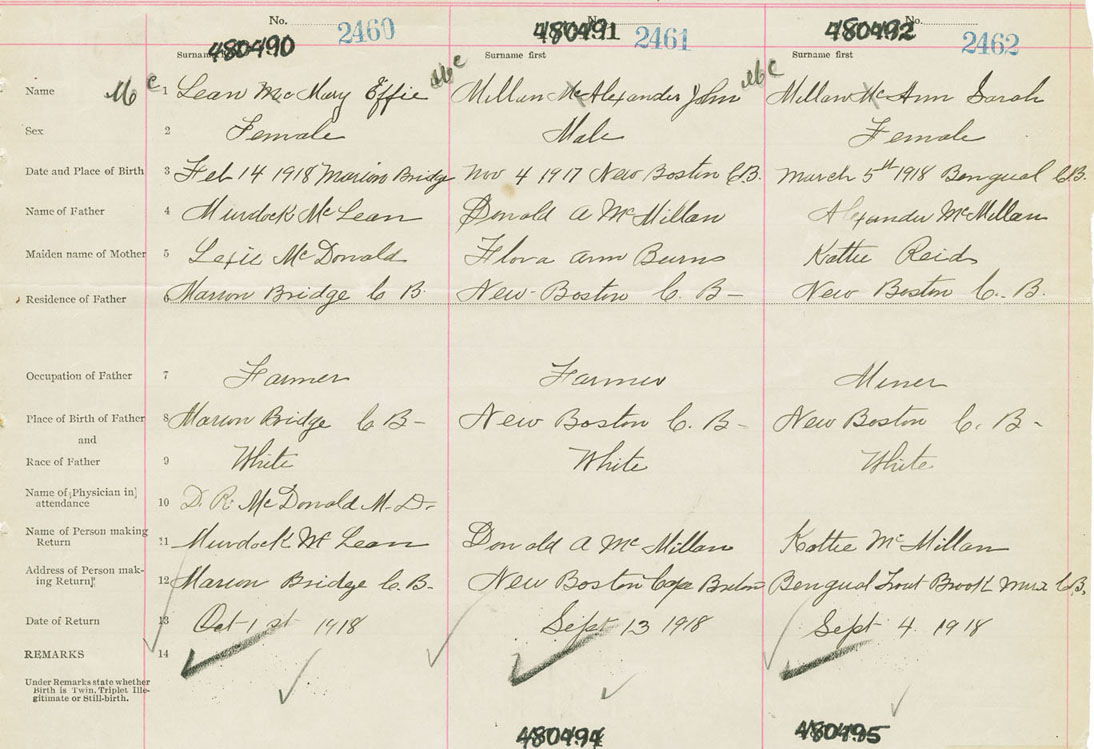 No. No. No.
480490 2460 480491 2461 480492 2462
Surname Surname first Surname first
Name Mc 1 Lean Mc Mary Effie Mc Millan Mc Alexander John Mc Millan Mc Ann Sarah
Sex 2 Female Male Female
Date and Place of Birth 3 Feb 14 1918 Marion Bridge Nov 4 1917 New Boston C.B. March 5th 1918 Bengual C.B.
Name of Father 4 Murdock McLean Donald A McMillan Alexander McMillan
Maiden name of Mother 5 Lexie McDonald Flora Ann Burns Kattie Reid
Residence of Father 6 Marion Bridge C B. New Boston C. B- New Boston C. B.
Occupation of Father 7 Farmer Farmer Miner
Place of Birth of Father 8 Marion Bridge C B- New Boston C. B- New Boston C. B-
and
Race of Father 9 White White White
Name of Physician in
attendance 10 D. R. McDonald M.D.
Name of Person making
Return 11 Murdock McLean Donald A McMillan Kattie McMillan
Address of Person mak-
ing Return 12 Marion Bridge C.B. New Boston Cape Breton Bengual Trout Brook C.B.
Date of Return 13 Oct 1st 1918 Sept 13 1918 Sept 4. 1918
REMARKS 14
Under Remarks state whether
Birth is Twin, Triplet Ille-
gitimate or Still-birth.
480494 480495